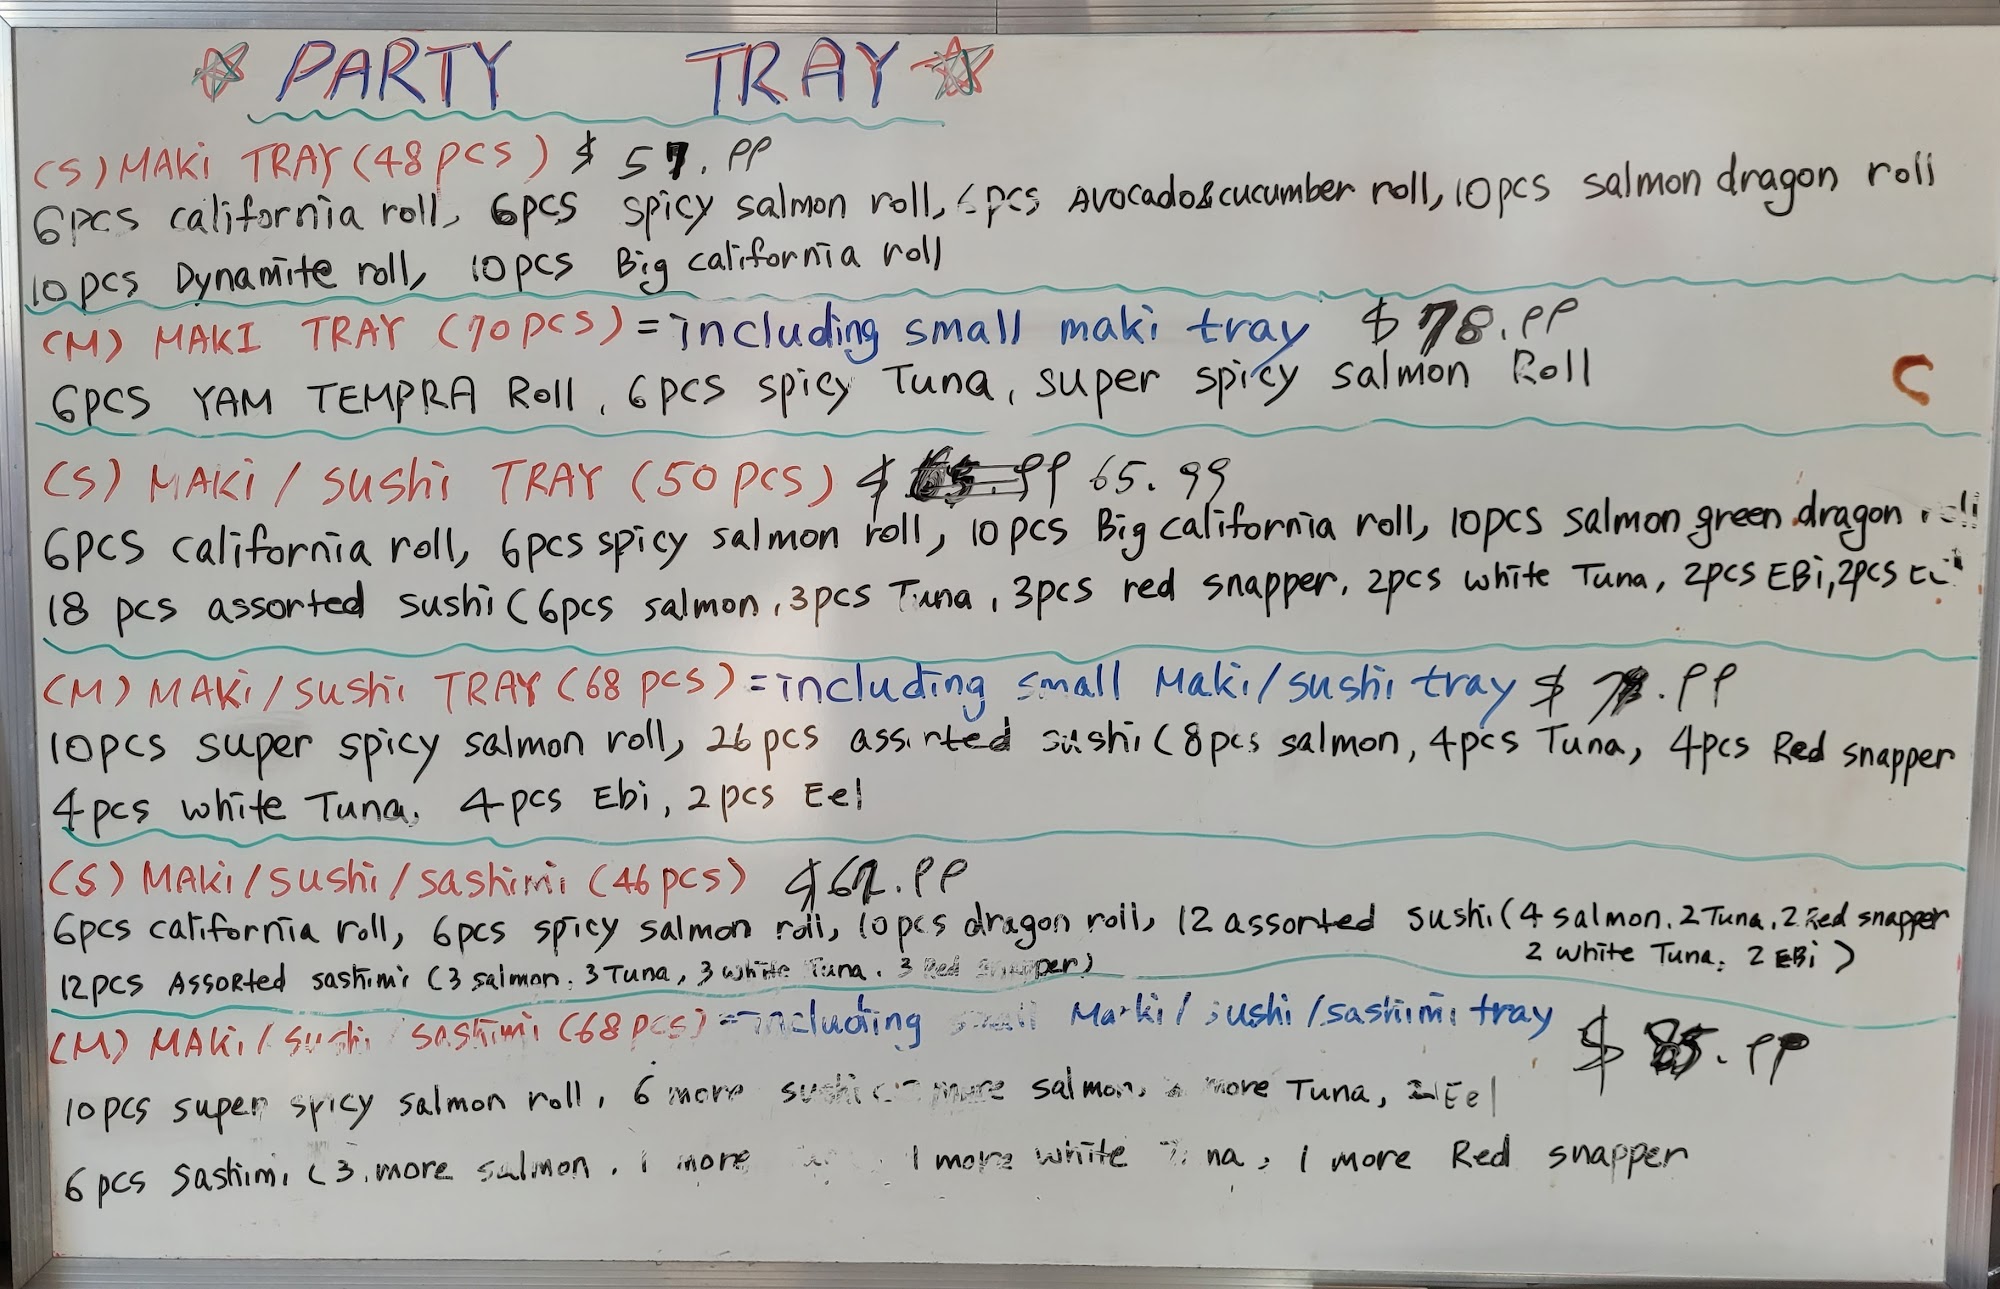 PARTY TRAY
(S) MAKi TRAY (48 pcs) $ 57.99
6pcs california roll, 6pcs spicy salmon roll, 6pcs Avocado&cucumber roll, 10pcs salmon dragon roll
10pcs Dynamite roll, 10pcs Big california roll
(M) MAKI TRAY (70pcs) = including small maki tray $ 78.99
6pcs YAM TEMPRA Roll, 6pcs spicy Tuna, super spicy salmon Roll
(S) MAKi / sushi TRAY (50pcs) $ 65.99
6pcs california roll, 6pcs spicy salmon roll, 10pcs Big california roll, 10pcs salmon green dragon roll
18 pcs assorted sushi (6pcs salmon, 3pcs Tuna, 3pcs red snapper, 2pcs white Tuna, 2pcs EBi, 2pcs
(M) MAKi/sushi TRAY (68 pcs) = including small Maki/sushi tray $
10pcs super spicy salmon roll, 26pcs assorted sushi (8pcs salmon, 4pcs Tuna, 4pcs Red snapper
4pcs white Tuna, 4pcs Ebi, 2pcs Eel
(S) MAKi/sushi/sashimi (46pcs) $
6pcs california roll, 6pcs spicy salmon roll, 10pcs dragon roll, 12 assorted sushi (4 salmon, 2 Tuna, 2 Red snapper
2 white Tuna, 2 EBi)
12pcs Assorted sashimi (3 salmon, 3 Tuna, 3 white Tuna, 3 Red snapper)
(M) MAKi/sushi/sashimi (68pcs) = including small Maki/sushi/sashimi tray $ 85.99
10pcs super spicy salmon roll, 6 more sushi more salmon, more Tuna, 2 Eel
6pcs sashimi (3 more salmon, 1 more 1 more white Tuna, 1 more Red snapper